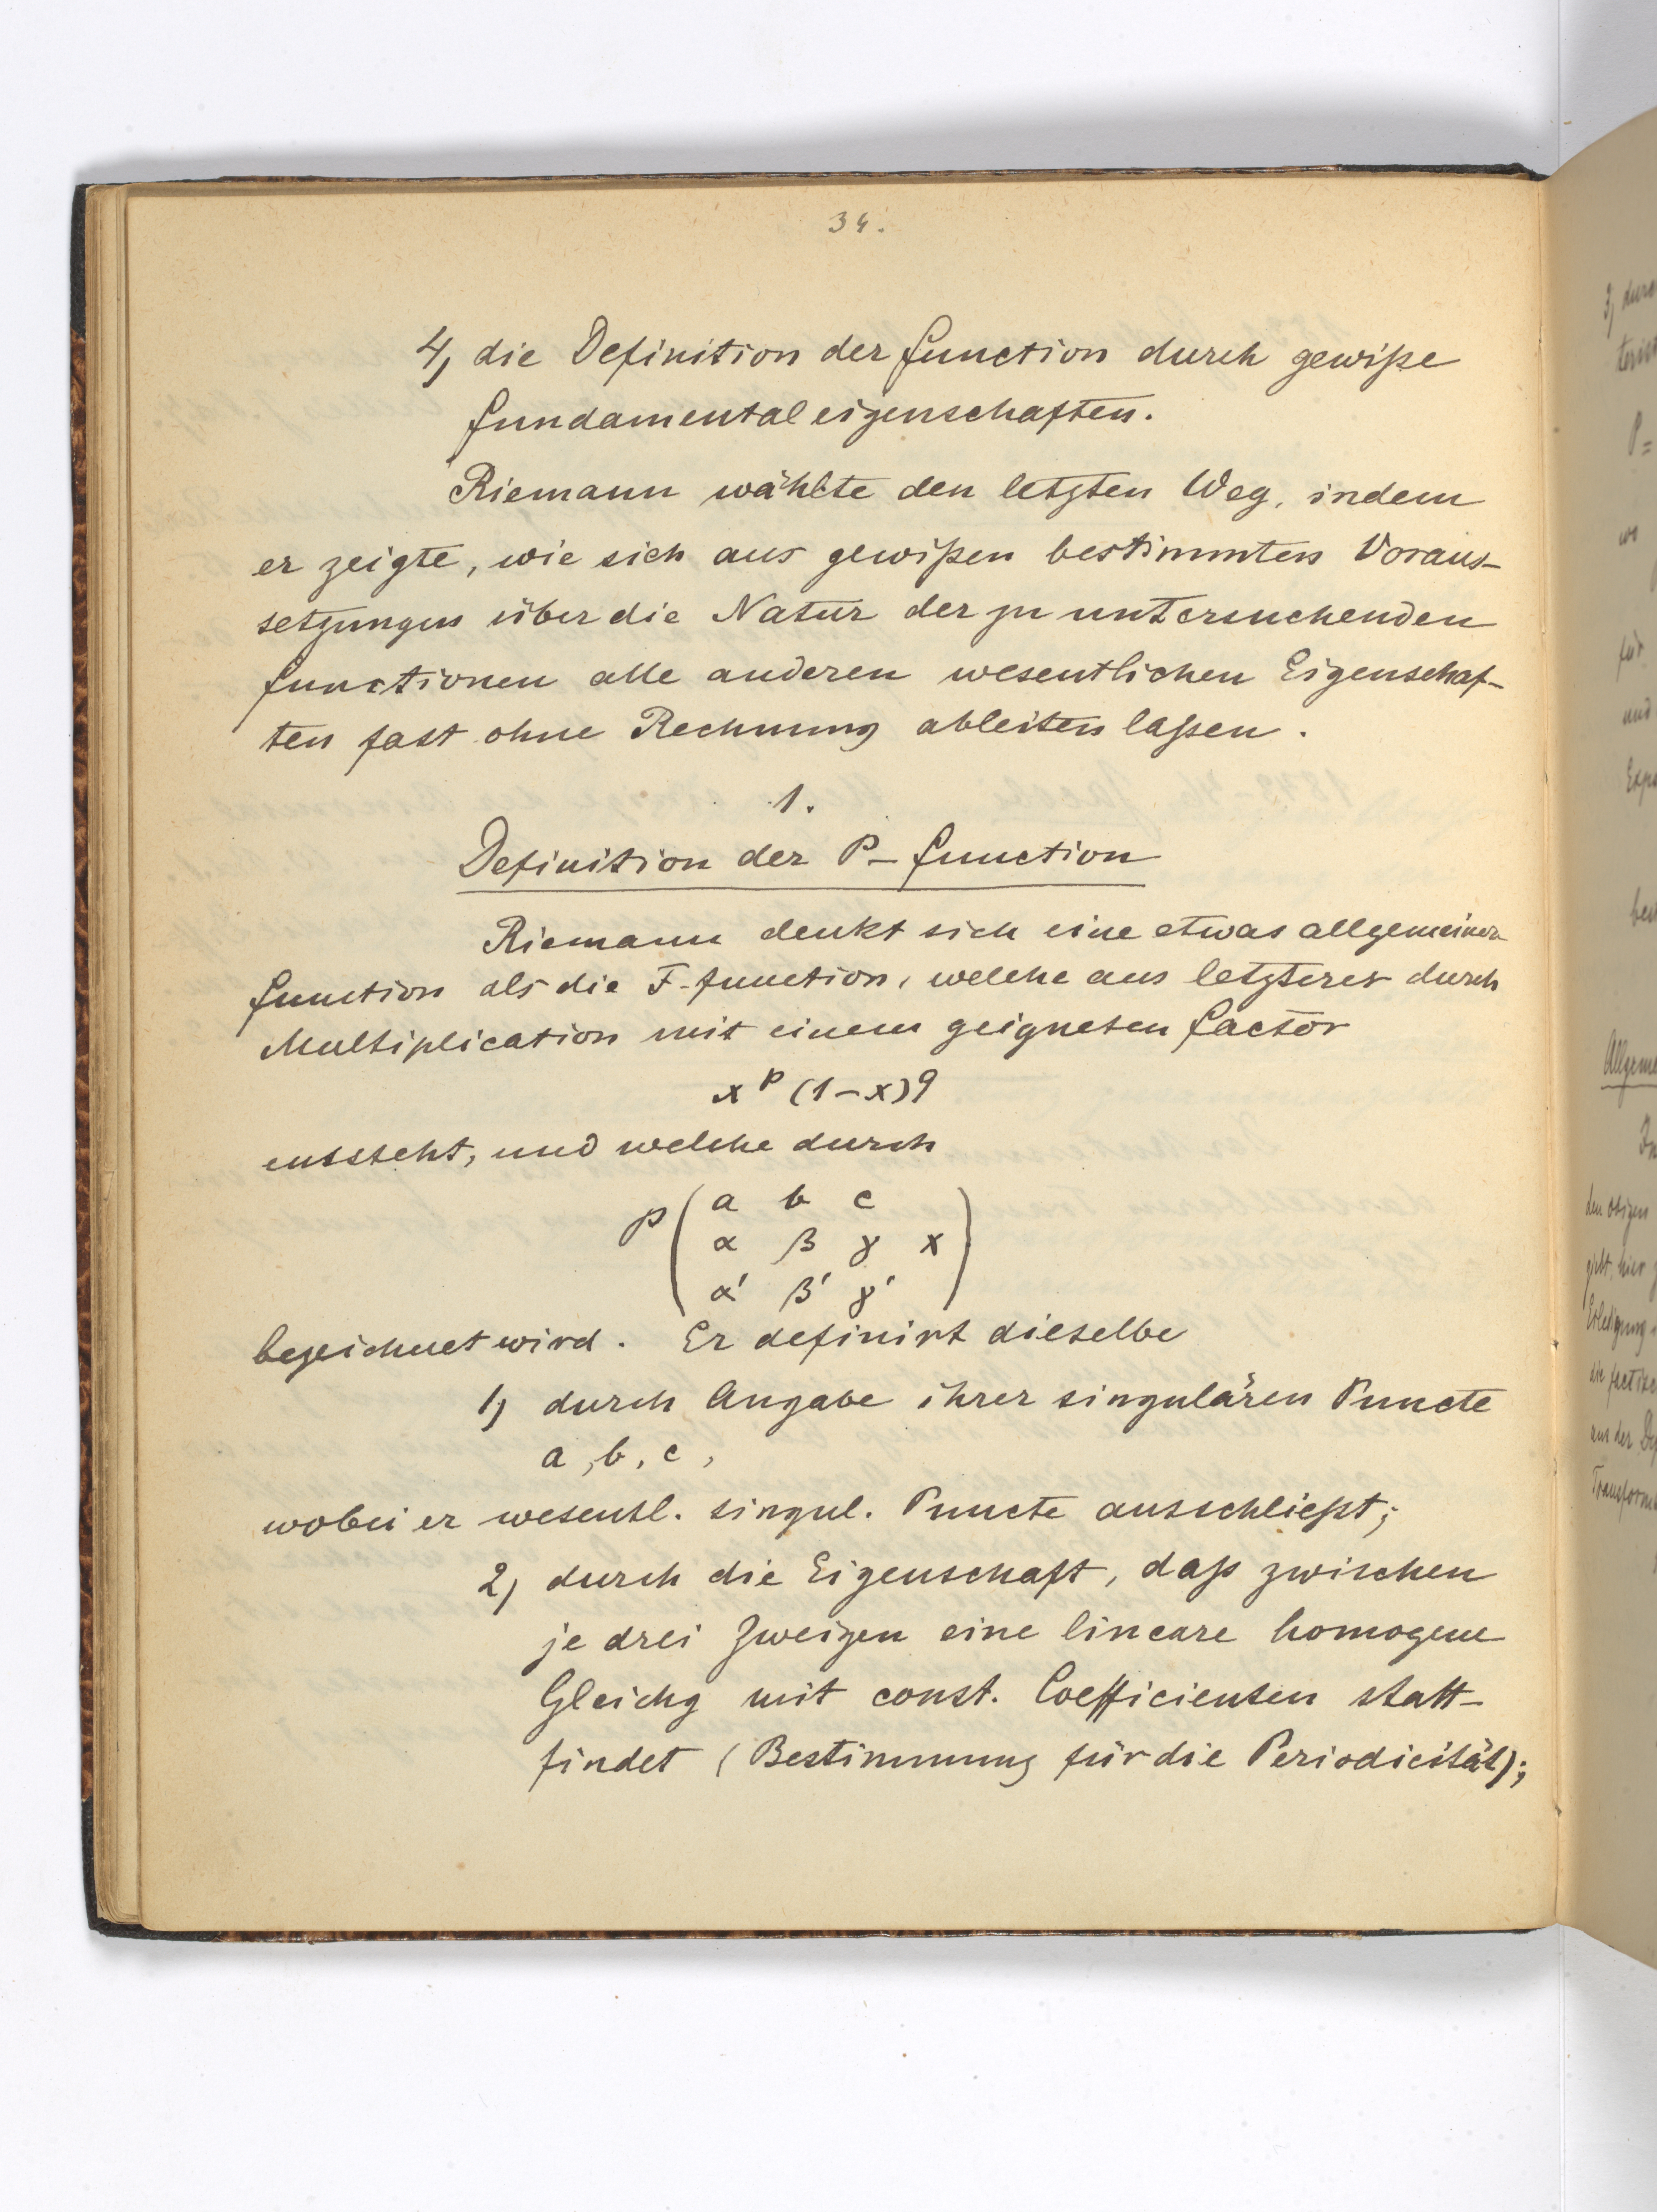 34.
4) die Definition der Function durch gewiße
Fundamentaleigenschaften.
Riemann wählte den letzten Weg, indem
er zeigte, wie sich aus gewißen bestimmten Voraus-
setzungen über die Natur der zu untersuchenden
Functionen alle anderen wesentlichen Eigenschaf-
ten fast ohne Rechnung ableiten laßen.
1.
Definition der P-Function
Riemann denkt sich eine etwas allgemeinere
Function als die F-Function, welche aus letzterer durch
Multiplication mit einem geigneten Factor
x^p (1-x)^q
entsteht, und welche durch
P ( a b c
α β γ x )
α' β' γ'
bezeichnet wird. Er definirt dieselbe
1) durch Angabe ihrer singulären Puncte
a, b, c,
wobei er wesentl. singul. Puncte ausschließt;
2) durch die Eigenschaft, daß zwischen
je drei Zweigen eine lineare homogene
Gleichg mit const. Coefficienten statt-
findet (Bestimmung für die Periodicität);
3) durch
P=
wo
für
und
Allgeme
den obigen
gibt, hier
Erledigung
die factisc
aus der
Transform